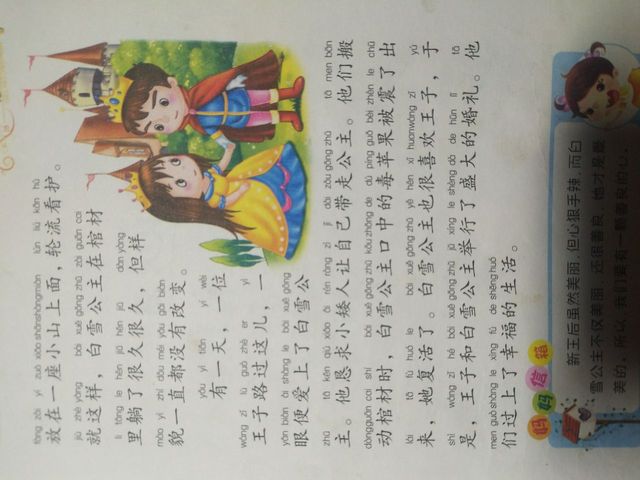 fàng zài yí zuò xiǎo shān shàng miàn lún liú kān hù
放在一座小山上面，轮流看护。
jiù zhè yàng bái xuě gōng zhǔ zài guān cai
就这样，白雪公主在棺材
lǐ tǎng le hěn jiǔ hěn jiǔ dàn yàng
里躺了很久很久，但样
mào yì zhí dōu méi yǒu gǎi biàn
貌一直都没有改变。
yǒu yì tiān yí wèi
有一天，一位
wáng zǐ lù guò zhè er yì
王子路过这儿，一
yǎn biàn ài shàng le bái xuě gōng
眼便爱上了白雪公
zhǔ tā kěn qiú xiǎo ǎi rén ràng zì jǐ dài zǒu gōng zhǔ tā men bān
主。他恳求小矮人让自己带走公主。他们搬
dòng guān cai shí bái xuě gōng zhǔ kǒu zhōng de dú píng guǒ bèi zhèn le chū
动棺材时，白雪公主口中的毒苹果被震了出
lái tā fù huó le bái xuě gōng zhǔ yě hěn xǐ huan wáng zǐ yú
来，她复活了。白雪公主也很喜欢王子，于
shì wáng zǐ hé bái xuě gōng zhǔ jǔ xíng le shèng dà de hūn lǐ tā
是，王子和白雪公主举行了盛大的婚礼。他
men guò shàng le xìng fú de shēng huó
们过上了幸福的生活。
妈妈信箱
新王后虽然美丽，但心狠手辣，而白
雪公主不仅美丽，还很善良，她才是最
美的。所以，我们要有一颗善良的心。